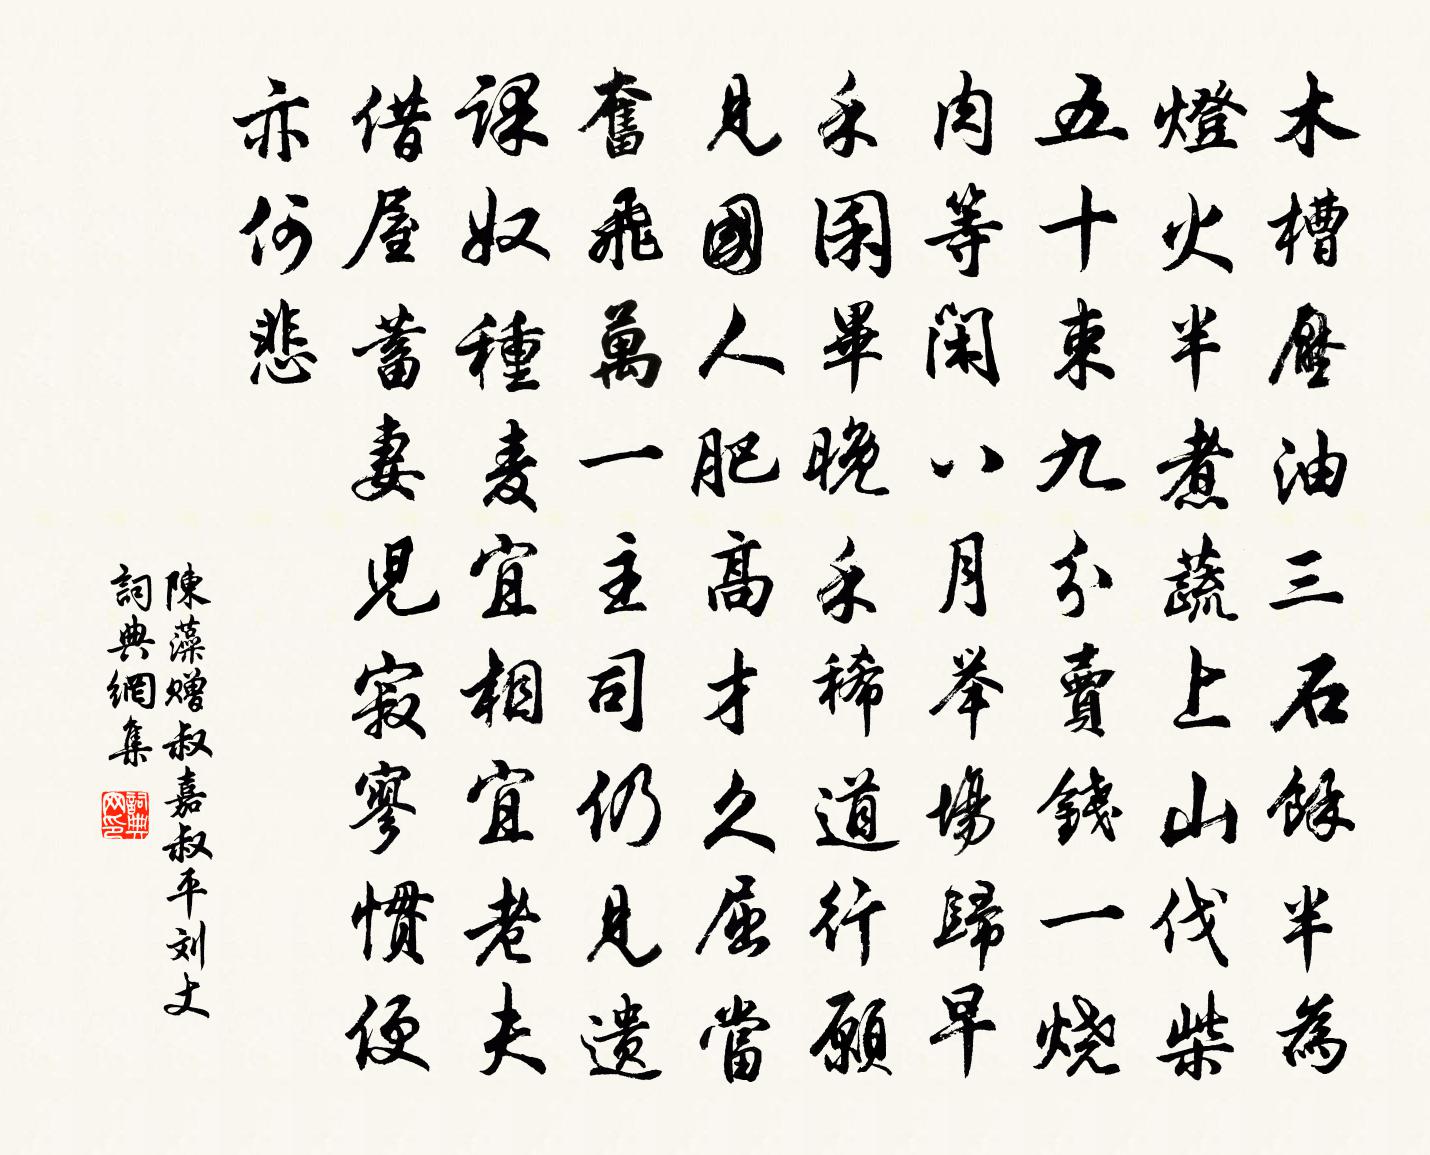 木槽壓油三石餘半為
燈火半煮蔬上山伐柴
五十束九分賣錢一烧
肉等閑八月举場歸早
禾困畢晚禾稀道行願
見國人肥高才久屈當
奮飛萬一主司仍見遗
課奴種麦宜相宜老夫
借屋蓄妻児寂寥慣便
亦何悲
陳藻赠叔嘉叔平刘丈
詞典網集
詞典网印